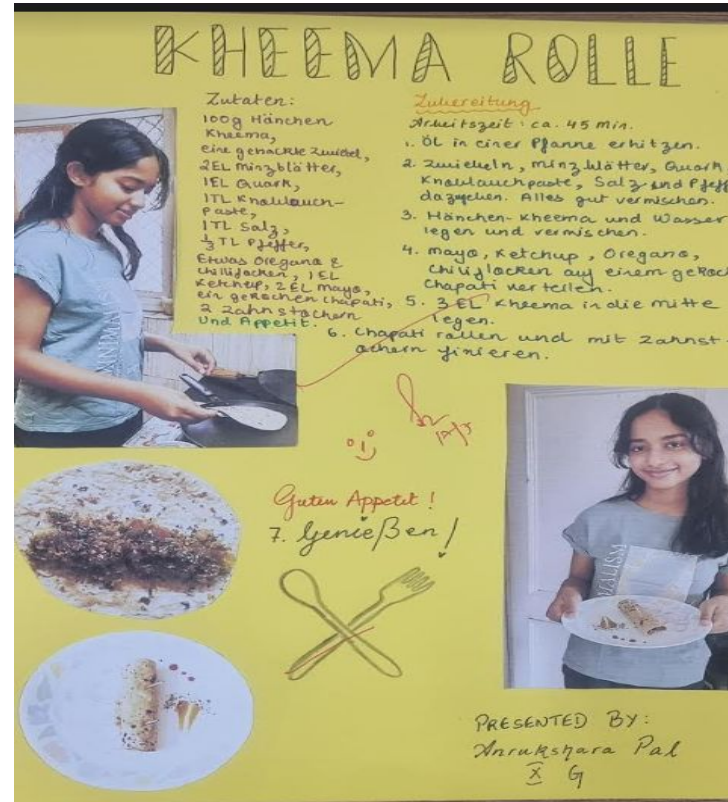 KHEEMA ROLLE
Zutaten:
100g Hänchen
Kheema,
eine gehackte Zwiebel,
2EL minzblätter,
1EL Quark,
1TL Knoblauch-
paste,
1TL Salz,
1/3 TL Pfeffer,
Etwas Oregano &
chilliflocken, 1EL
Ketchup, 2 EL mayo,
ein gekochen chapati,
2 Zahnstochern
Und Appetit.
Zubereitung
Arbeitszeit: ca. 45 min.
1. Öl in einer Pfanne erhitzen.
2. Zwiebeln, minzblätter, Quark
Knoblauchpaste, Salz und Pfeff
dazugeben. Alles gut vermischen.
3. Hänchen-Kheema und Wasser
legen und vermischen.
4. mayo, Ketchup, Oregano,
chiliflocken auf einem gekoch
Chapati verteilen.
5. 3 EL Kheema in die mitte
legen.
6. Chapati rollen und mit Zahnst-
ochern fixieren.
Guten Appetit!
7. Genießen!
PRESENTED BY:
Anrukshara Pal
X G